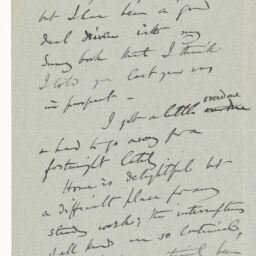 but I have been a good
deal driven with my
Surrey book that I think
I told you last year was
in prospect –
I got a little overdone
& had to go away for a
fortnight lately
Home is delightful but
a difficult place for any
steady work; the interruptions
of all kinds are so continual,
been